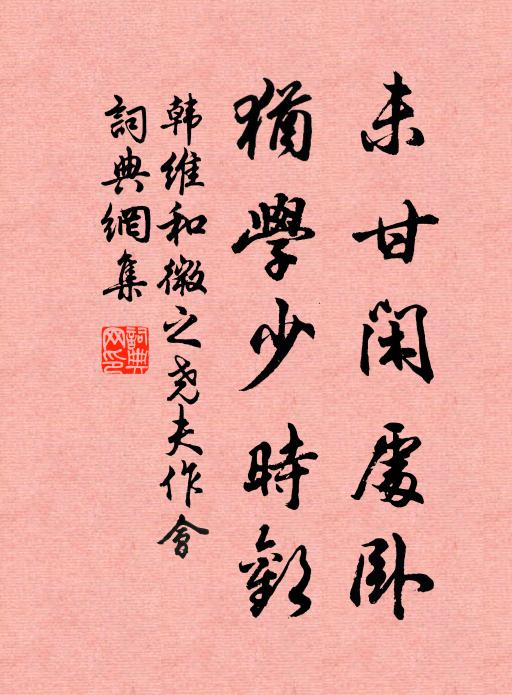 未甘閑處卧
猶學少時歡
韩維和微之尧夫作會
詞典網集
詞典网印